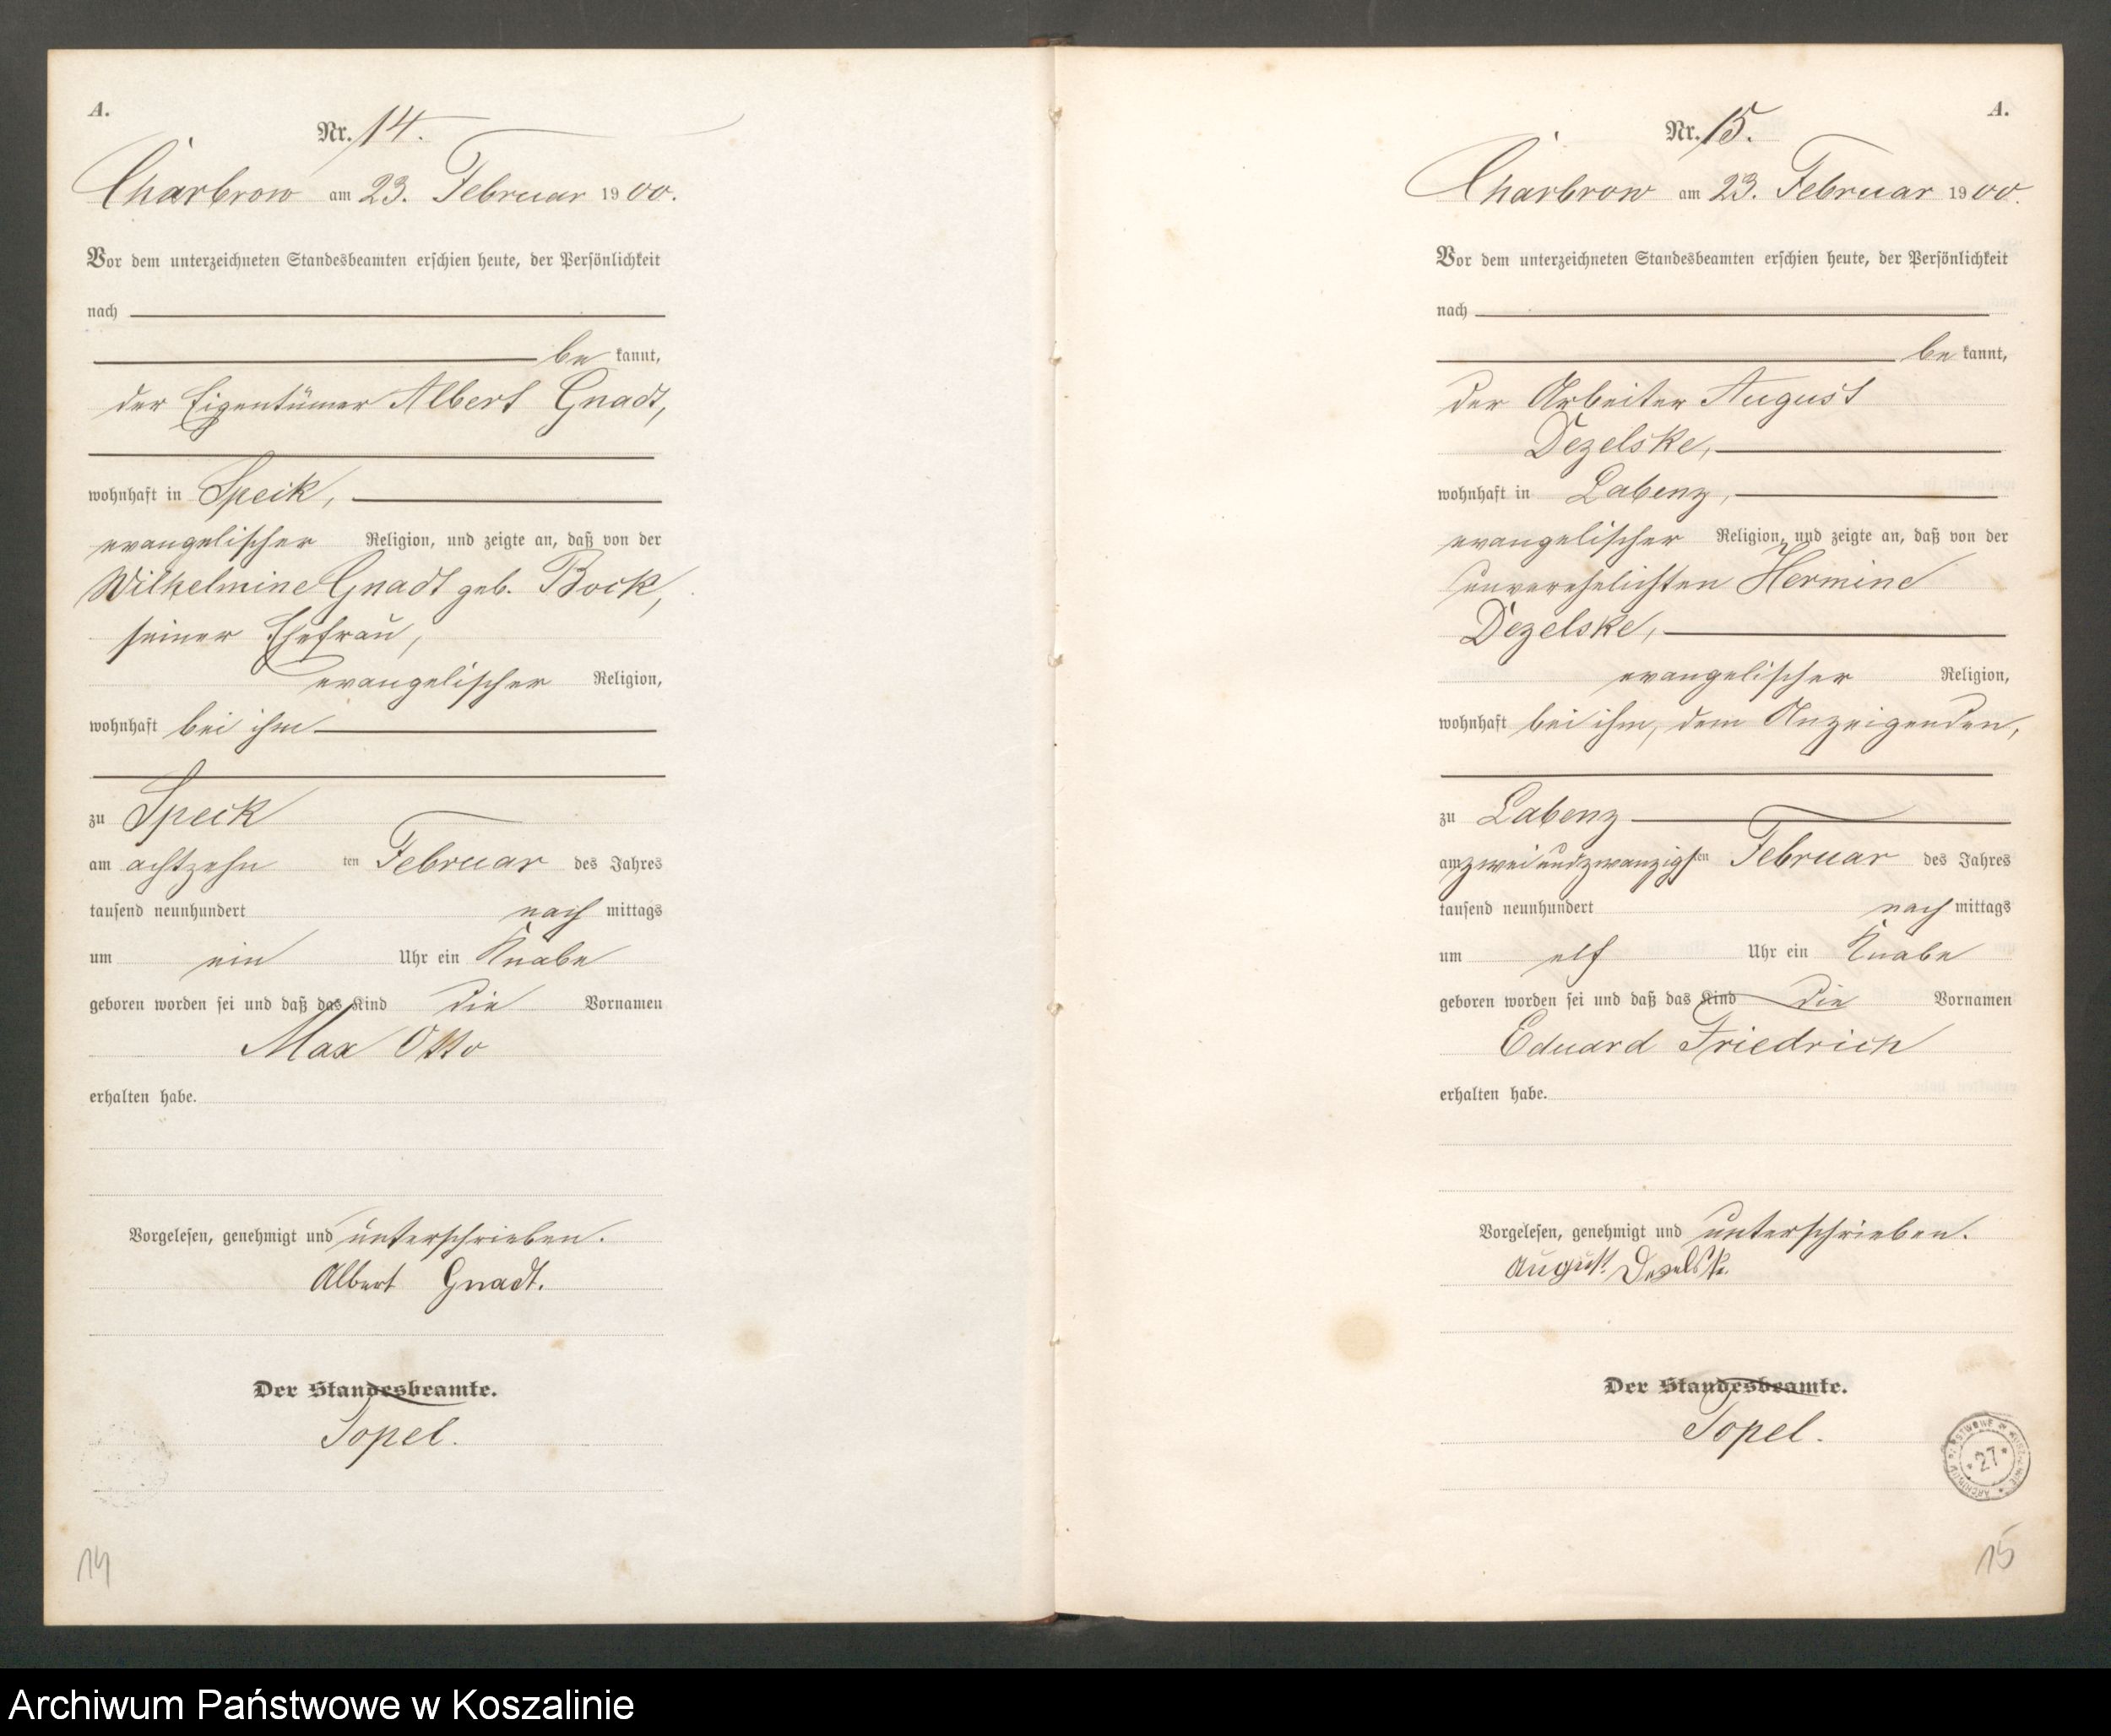 A.
Nr. 14.
Charbrow am 23. Februar 1900.
Vor dem unterzeichneten Standesbeamten erschien heute, der Persönlichkeit
nach
bekannt,
der Eigentümer Albert Gnadt,
wohnhaft in Speck,
evangelischer Religion, und zeigte an, daß von der
Wilhelmine Gnadt geb. Bock,
seiner Ehefrau,
evangelischer Religion,
wohnhaft bei ihm
zu Speck
am achtzehn ten Februar des Jahres
tausend neunhundert nach mittags
um ein Uhr ein Knabe
geboren worden sei und daß das Kind die Vornamen
Max Otto
erhalten habe.
Vorgelesen, genehmigt und unterschrieben.
Albert Gnadt.
Der Standesbeamte.
Topel.
14
A.
Nr. 15.
Charbrow am 23. Februar 1900.
Vor dem unterzeichneten Standesbeamten erschien heute, der Persönlichkeit
nach
bekannt,
der Arbeiter August
Dezelske,
wohnhaft in Labenz,
evangelischer Religion, und zeigte an, daß von der
unverehelichten Hermine
Dezelske,
evangelischer Religion,
wohnhaft bei ihm, dem Anzeigenden,
zu Labenz
am zweiundzwanzigsten Februar des Jahres
tausend neunhundert nach mittags
um elf Uhr ein Knabe
geboren worden sei und daß das Kind die Vornamen
Eduard Friedrich
erhalten habe.
Vorgelesen, genehmigt und unterschrieben.
August Dezelske.
Der Standesbeamte.
Topel.
ARCHIWUM PAŃSTWOWE W KOSZALINIE
27
15
Archiwum Państwowe w Koszalinie